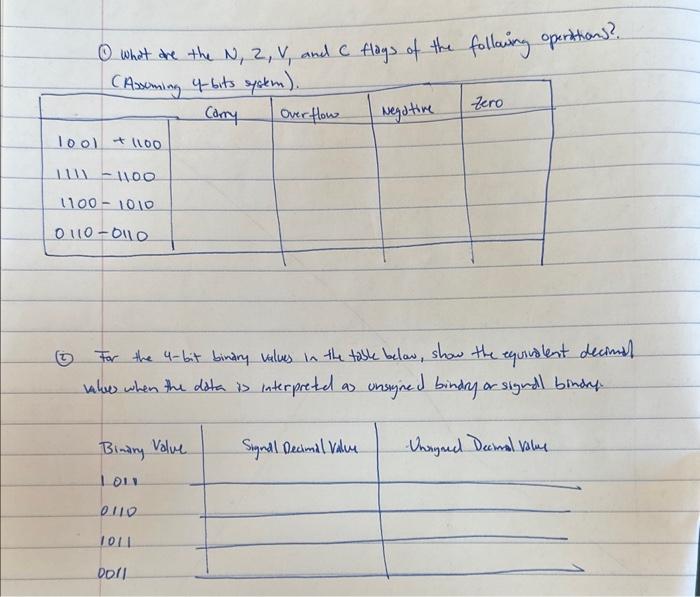 ① What are the N, Z, V, and C flags of the following operations?.
(Assuming 4-bits system).
Carry Overflow Negative Zero
1001 + 1100
1111 - 1100
1100 - 1010
0110 - 0110
② For the 4-bit binary values in the table below, show the equivalent decimal
values when the data is interpreted as unsigned binary or signed binary.
Binary Value Signed Decimal Value Unsigned Decimal Value
1011
0110
1011
0011